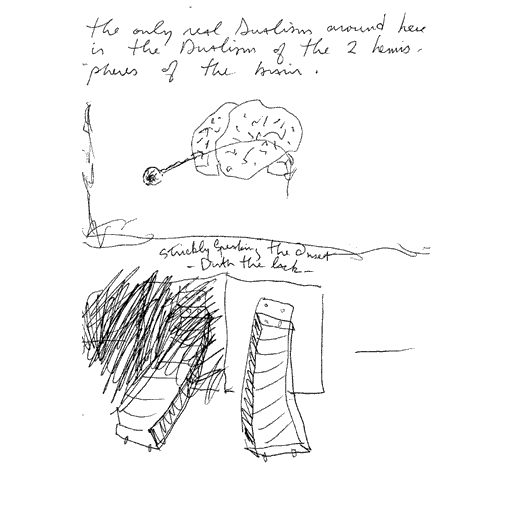 the only real Dualism around here
is the Dualism of the 2 hemis-
pheres of the brain.
strickly speaking the
- the lack -